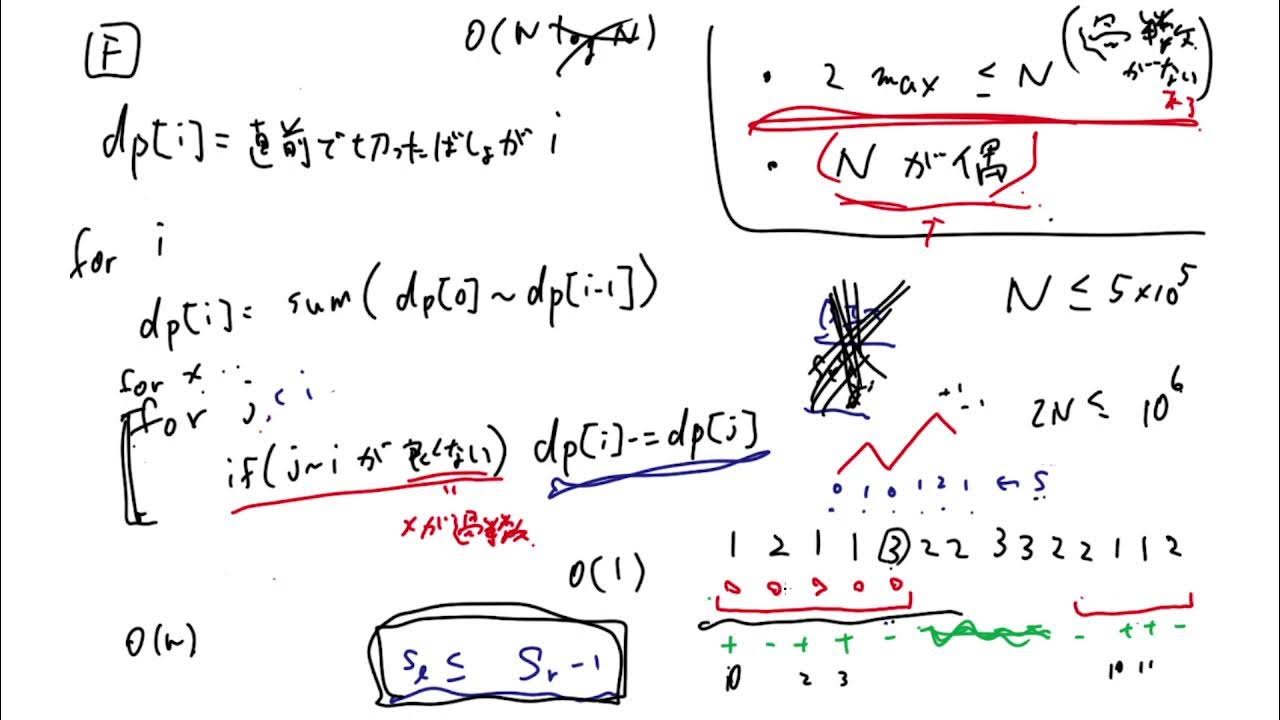 F
O(N log N)
dp[i] = 直前で切ったばしょが i
・ 2 max ≤ N (過半数がない)
・ (N が偶)
for i
dp[i] = sum( dp[0] ~ dp[i-1] )
for x
for j < i
if( j~i が良くない) dp[i] -= dp[j]
"
xが過半数
N ≤ 5×10^5
2N ≤ 10^6
+1
-1
0 1 0 1 2 1 ← S
1 2 1 1 3 2 2 3 3 2 2 1 1 2
O(1)
+ - + + - - + + -
2 3
10 11
O(N)
S_l ≤ S_r - 1